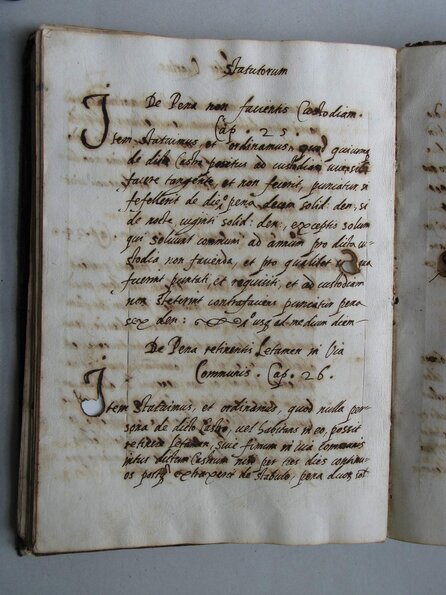 Statutorum
De Pena non facientis Custodiam.
Cap. 25.
Item statuimus, et ordinamus, quod quicunq;
de dicto Castro positus ad custodiam
facere et non fecerit, puniatur, si
fefellerit de die, pena decem solid: den:, si
de nocte viginti solid: den:, exceptis solum
qui solvunt communi ad annum pro dicta cu=
stodia non facienda, et pro qualibet
fuerint puntati, et requisiti, et ad custodiam
non steterint contrafaciens puniatur pena
sex den: usq; ad medium diem
De Pena retinentis Letamen in Via
Communis. Cap. 26.
Item statuimus, et ordinamus, quod nulla per=
sona de dicto Castro, vel habitans in eo, possit
retinere Letamen, sive fimum in via communis
intus dictum Castrum nisi per tres dies continu=
os postq; extraxerit de stabulo, pena duor, sol